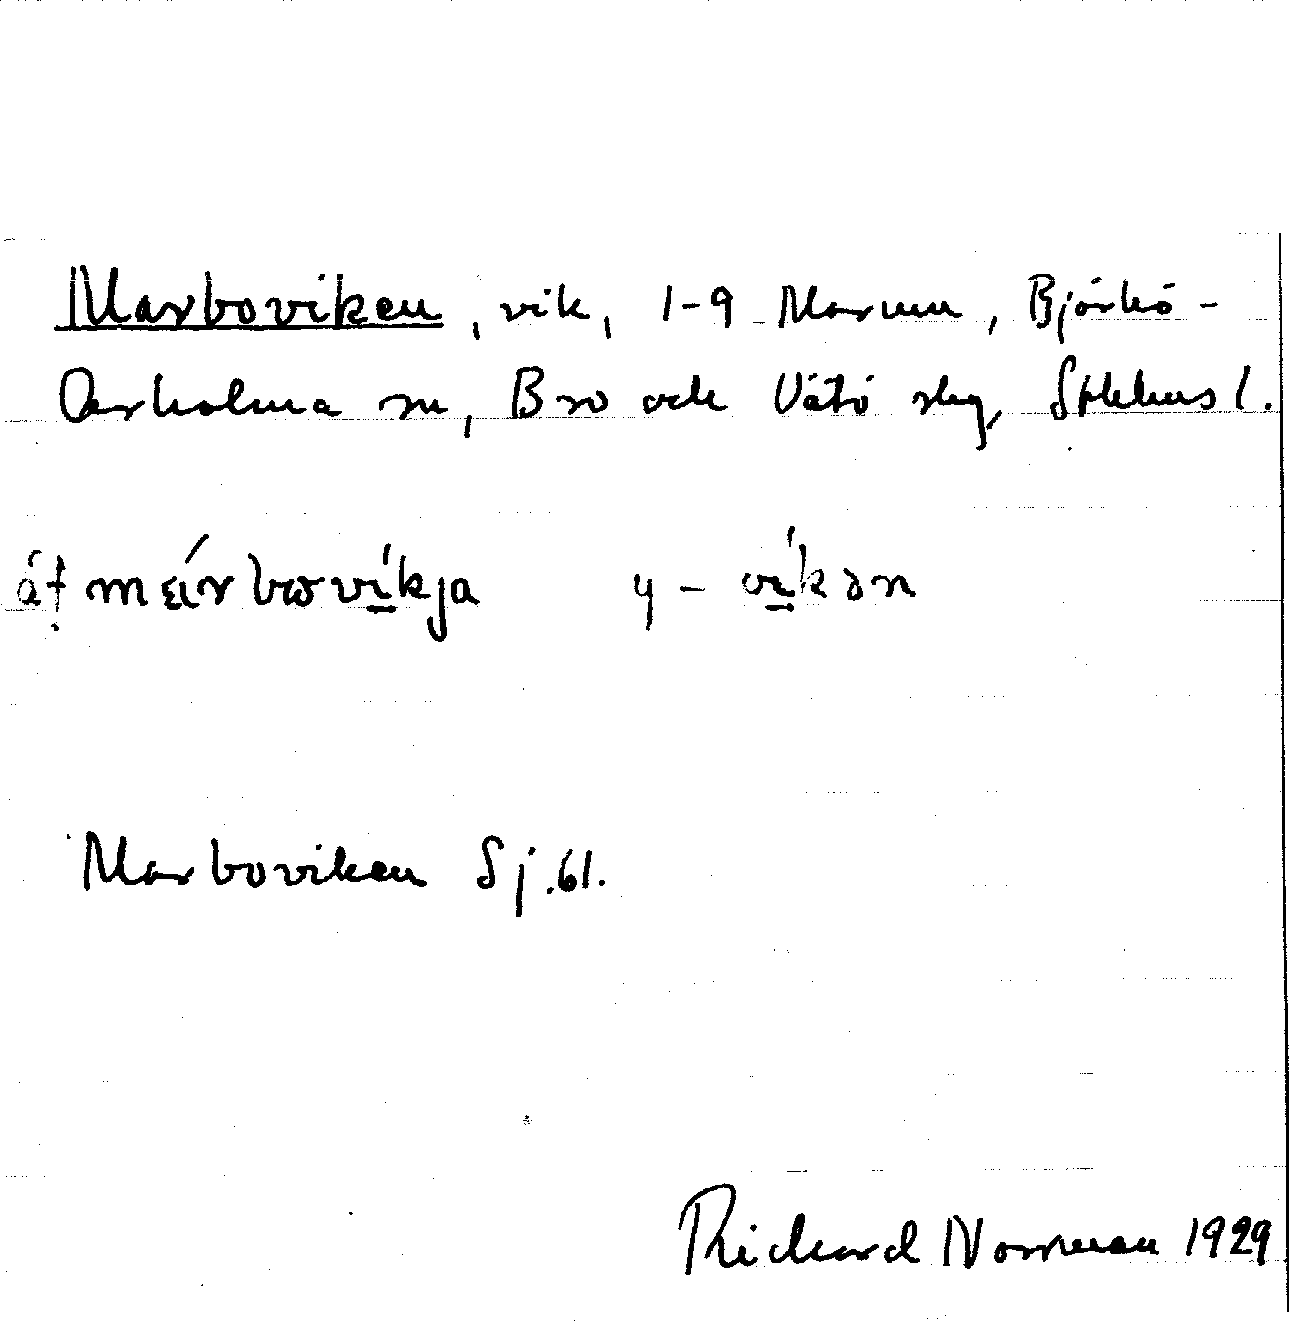 Marboviken, vik, 1-9 Marum, Björkö-
Arholma sn, Bro och Vätö slg, Sthlms l.
át márbovíkja y - víkən
Marboviken Sj.61.
Richard Norrman 1929